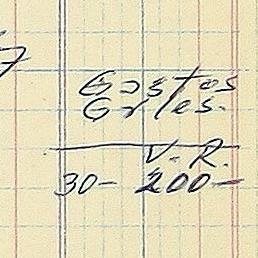 7
Gastos
Grles.
V. R.
30- 200-